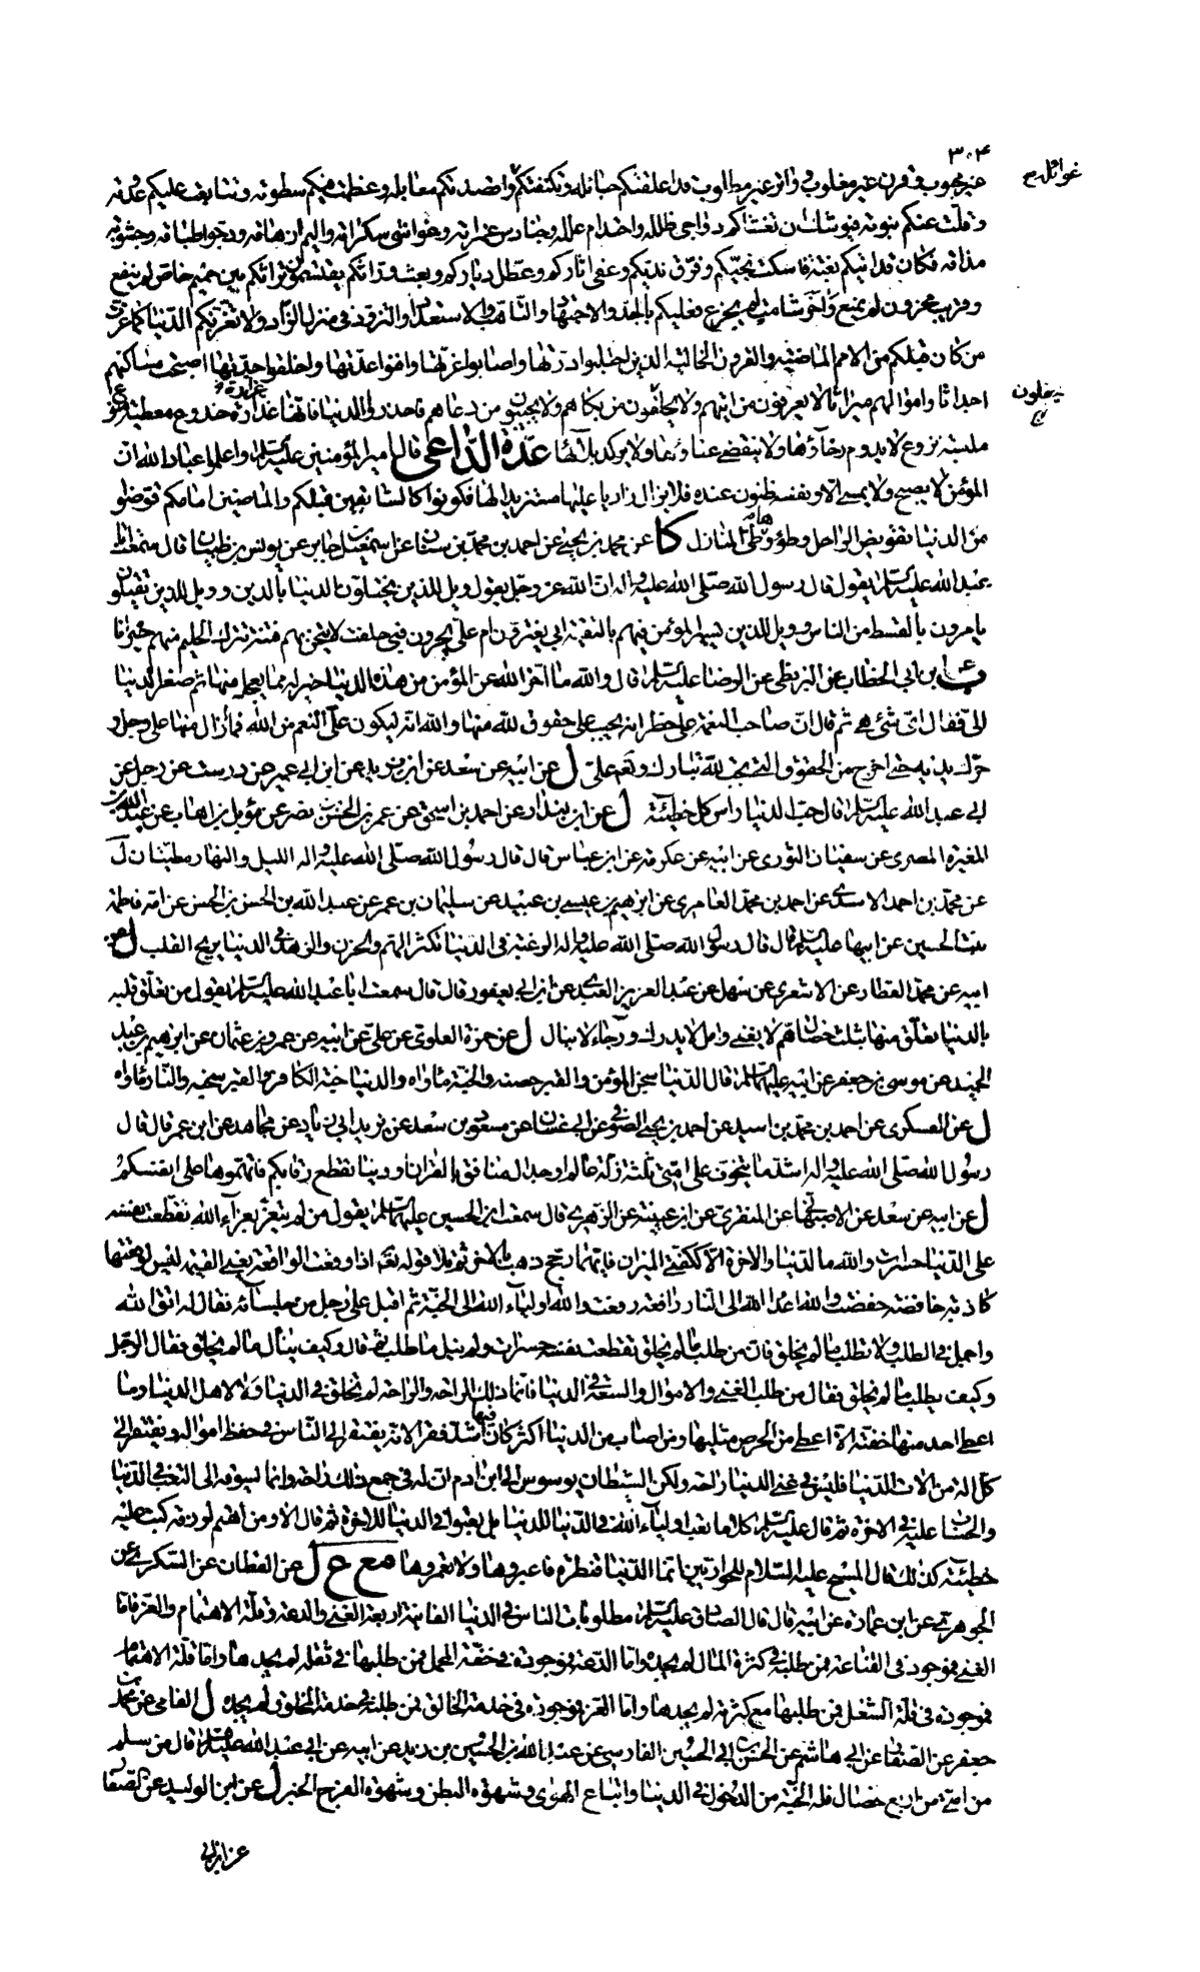 ٣٠۴
غوائله ح
غير محبوب وقرن غير مغلوب وواتر غير مطلوب قد اعلقتكم حبائله وتكنفتكم واقصدتكم معابله وعظمت فيكم سطوته وتتابعت عليكم عدوته
وقلت عنكم نبوته فيوشك ان تغشاكم دواجي ظلله واحتدام علله وحنادس غمراته وغواشي سكراته واليم ارهاقه ودجو اطباقه وجشوبة
مذاقه فكان قد اتيكم بغتة فاسكت نجيّكم وفرّق نديّكم وعفى اثاركم وعطل دياركم وبعث ورّاثكم يقتسمون تراثكم بين حميم خاص لم ينفع
وقريب محزون لم يمنع واخر شامت لم يجزع فعليكم بالجدّ والاجتهاد والتاهب والاستعداد والتزود في منزل الزاد ولا تغرنكم الدنيا كما غرت
من كان قبلكم من الامم الماضية والقرون الخالية الذين احتلبوا درتها واصابوا غرتها وافنوا عدتها واخلقوا جدتها اصبحت مساكنهم
احداثا واموالهم ميراثا لا يعرفون من اتيهم ولا يحفلون من بكاهم ولا يجيبون من دعاهم فاحذروا الدنيا فانها غدارة غرارة خدوع معطية منوع
يحفلون
ملبسة نزوع لا يدوم رخاؤها ولا ينقضي عناؤها ولا يركد بلاؤها عدّة الدّاعي قال امير المؤمنين عليه السلام واعلموا عباد الله ان
المؤمن لا يصبح ولا يمسي الا ونفسه ظنون عنده فلا يزال زاريا عليها ومستزيدا لها فكونوا كالسابقين قبلكم والماضين امامكم قوضوا
من الدنيا تقويض الراحل وطووها طيّ المنازل كا عن محمد بن يحيى عن احمد بن محمد بن سنان عن اسمعيل بن جابر عن يونس بن ظبيان قال سمعت ابا
عبد الله عليه السلام يقول قال رسول الله صلى الله عليه واله ان الله عز وجل يقول ويل للذين يختلون الدنيا بالدين وويل للذين يقتلون
يامرون بالقسط من الناس وويل للذين يسير المؤمن فيهم بالتقية ابي يغترون ام عليّ يجترون فبي حلفت لاتيحن بهم فتنة تترك الحليم منهم حيرانا
ابن ابي الخطاب عن البزنطي عن الرضا عليه السلام قال والله ما اخر الله عن المؤمن من هذه الدنيا خير له مما يعجل منها ثم صغر الدنيا
الي فقال اي شئ هي ثم قال ان صاحب النعمة على خطر انه يجب علي حقوق لله منها والله انه ليكون عليّ النعم من الله فما ازال منها على وجل و
حرك يديه حتى اخرج من الحقوق التي تجب لله تبارك وتعالى عليّ ل عن ابيه عن سعد عن ابن يزيد عن ابن ابي عمير عن درست عن رجل عن
ابي عبد الله عليه السلام قال حب الدنيا راس كل خطيئة ل عن ابن بندار عن احمد بن اسحق عن عمر بن الحسن بن نصر عن مؤمل بن اهاب عن عبد الله بن
المغيرة المصري عن سفيان الثوري عن ابيه عن عكرمة عن ابن عباس قال قال رسول الله صلى الله عليه واله الليل والنهار مطيتان ل
عن محمد بن احمد الاسدي عن احمد بن محمد العامري عن ابرهيم بن عيسى بن عبيد عن سليمان بن عمر عن عبد الله بن الحسن بن الحسن عن امه فاطمة
بنت الحسين عن ابيها عليه السلام قال قال رسول الله صلى الله عليه واله الرغبة في الدنيا تكثر الهم والحزن والزهد في الدنيا يريح القلب ل عن
ابيه عن محمد العطار عن الاشعري عن سهل عن عبد العزيز العبدي عن ابن ابي يعفور قال قال سمعت ابا عبد الله عليه السلام يقول من تعلق قلبه
بالدنيا تعلق منها بثلث خصال هم لا يفنى وامل لا يدرك ورجاء لا ينال ل عن حمزة العلوي عن علي عن ابيه عن عمرو بن عثمان عن ابرهيم بن عبد
الحميد عن موسى بن جعفر عن ابيه عليهما السلام قال الدنيا سجن المؤمن والقبر حصنه والجنة ماواه والدنيا جنة الكافر والقبر سجنه والنار ماواه
ل عن العسكري عن احمد بن محمد بن اسيد عن احمد بن يحيى الصوفي عن ابي غسان عن مسعود بن سعد عن يزيد ابي زياد عن مجاهد عن ابن عمر قال قال
رسول الله صلى الله عليه واله اشد ما يتخوف على امتي ثلثة زلة عالم او جدال منافق بالقران او دنيا تقطع رقابكم فاتهموها على انفسكم
ل عن ابيه عن سعد عن الاصبهاني عن المنقري عن ابن عيينة عن الزهري قال سمعت ابن الحسين عليهما السلام يقول من لم يتعز بعزاء الله تقطعت نفسه
على الدنيا حسرات والله ما الدنيا والاخرة الا ككفتي الميزان فايهما رجح ذهب بالاخر ثم تلا قوله تعالى اذا وقعت الواقعة يعني القيمة ليس لوقعتها
كاذبة خافضة خفضت والله اعداء الله الى النار رافعة رفعت والله اولياء الله الى الجنة ثم اقبل على رجل من جلسائه فقال له اتق الله
واجمل في الطلب ولا تطلب ما لم يخلق فان من طلب ما لم يخلق تقطعت نفسه حسرات ولم ينل ما طلب ثم قال وكيف ينال ما لم يخلق فقال الرجل
وكيف يطلب ما لم يخلق فقال من طلب الغنى والاموال والسعة في الدنيا فانما يطلب ذلك للراحة والراحة لم تخلق في الدنيا ولا لاهل الدنيا وما
اعطي احد منها حفنة الا اعطي من الحرص مثليها ومن اصاب من الدنيا اكثر كان فيها اشد فقرا لانه يفتقر الى الناس في حفظ امواله ويفتقر الى
كل الة من الات الدنيا فليس في غنى الدنيا راحة ولكن الشيطان يوسوس الى ابن ادم ان له في جمع ذلك راحة وانما يسوقه الى التعب في الدنيا
والحساب عليه في الاخرة ثم قال عليه السلام كلا ما تعب اولياء الله في الدنيا للدنيا بل تعبوا في الدنيا للاخرة ثم قال الا ومن اهتم لرزقه كتب عليه
خطيئة كذلك قال المسيح عليه السلام للحواريين انما الدنيا قنطرة فاعبروها ولا تعمروها مع ح ل عن القطان عن السكري عن
الجوهري عن ابن عمارة عن ابيه قال قال الصادق عليه السلام مطلوبات الناس في الدنيا الفانية اربعة الغنى والدعة وقلة الاهتمام والعز فاما
الغنى فموجود في القناعة فمن طلبه في كثرة المال لم يجده واما الدعة فموجودة في خفة المحمل فمن طلبها في ثقله لم يجدها واما قلة الاهتمام
فموجودة في قلة الشغل فمن طلبها مع كثرته لم يجدها واما العز فموجودة في خدمة الخالق فمن طلبه في خدمة المخلوق لم يجده ل الفامي عن محمد بن
جعفر عن الصفار عن ابي هاشم عن الحسن بن ابي الحسين الفارسي عن عبد الله بن الحسين بن زيد عن ابيه عن ابي عبد الله عليه السلام قال من سلم
من امتي من اربع خصال فله الجنة من الدخول في الدنيا واتباع الهوى وشهوة البطن وشهوة الفرج الخبر ل عن ابن الوليد عن الصفار